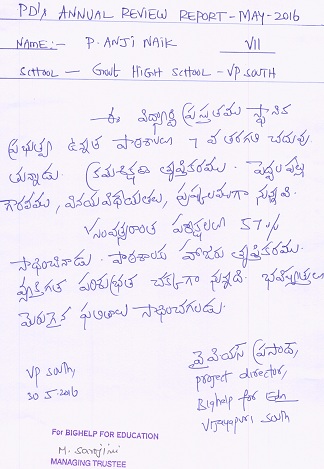 PDI's ANNUAL REVIEW REPORT - MAY-2016
NAME:- P. ANJI NAIK VII
SCHOOL - Govt HIGH SCHOOL - VP SOUTH
ఈ విద్యార్థి ప్రస్తుతము స్థానిక
ప్రభుత్వ ఉన్నత పాఠశాలలో 7 వ తరగతి చదువు
తున్నాడు. క్రమశిక్షణ తృప్తికరము. పెద్దలపట్ల
గౌరవము, వినయవిధేయతలు, పుష్కలముగా నున్నవి.
సంవత్సరాంత పరీక్షలలో 57%
సాధించినాడు. పాఠశాల హాజరు తృప్తికరము.
వ్యక్తిగత పరిశుభ్రత చక్కగా నున్నది. భవిష్యత్తులో
మెరుగైన ఫలితాలు సాధించగలడు.
VP South,
30.5.2016
వైపియస్ ప్రసాద్,
project director,
Bighelp for Edn
Vijayapuri South
For BIGHELP FOR EDUCATION
M. Sarojini
MANAGING TRUSTEE